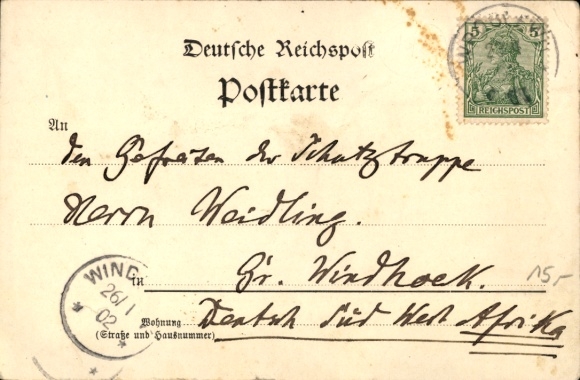 Deutsche Reichspost
Postkarte
5 5
REICHSPOST
An
den Gefreiten der Schutztruppe
Herrn Weidling.
in Gr. Windhoek.
15.-
WIND
26/1
02
Wohnung
(Straße und Hausnummer)
Deutsch Süd West Afrika